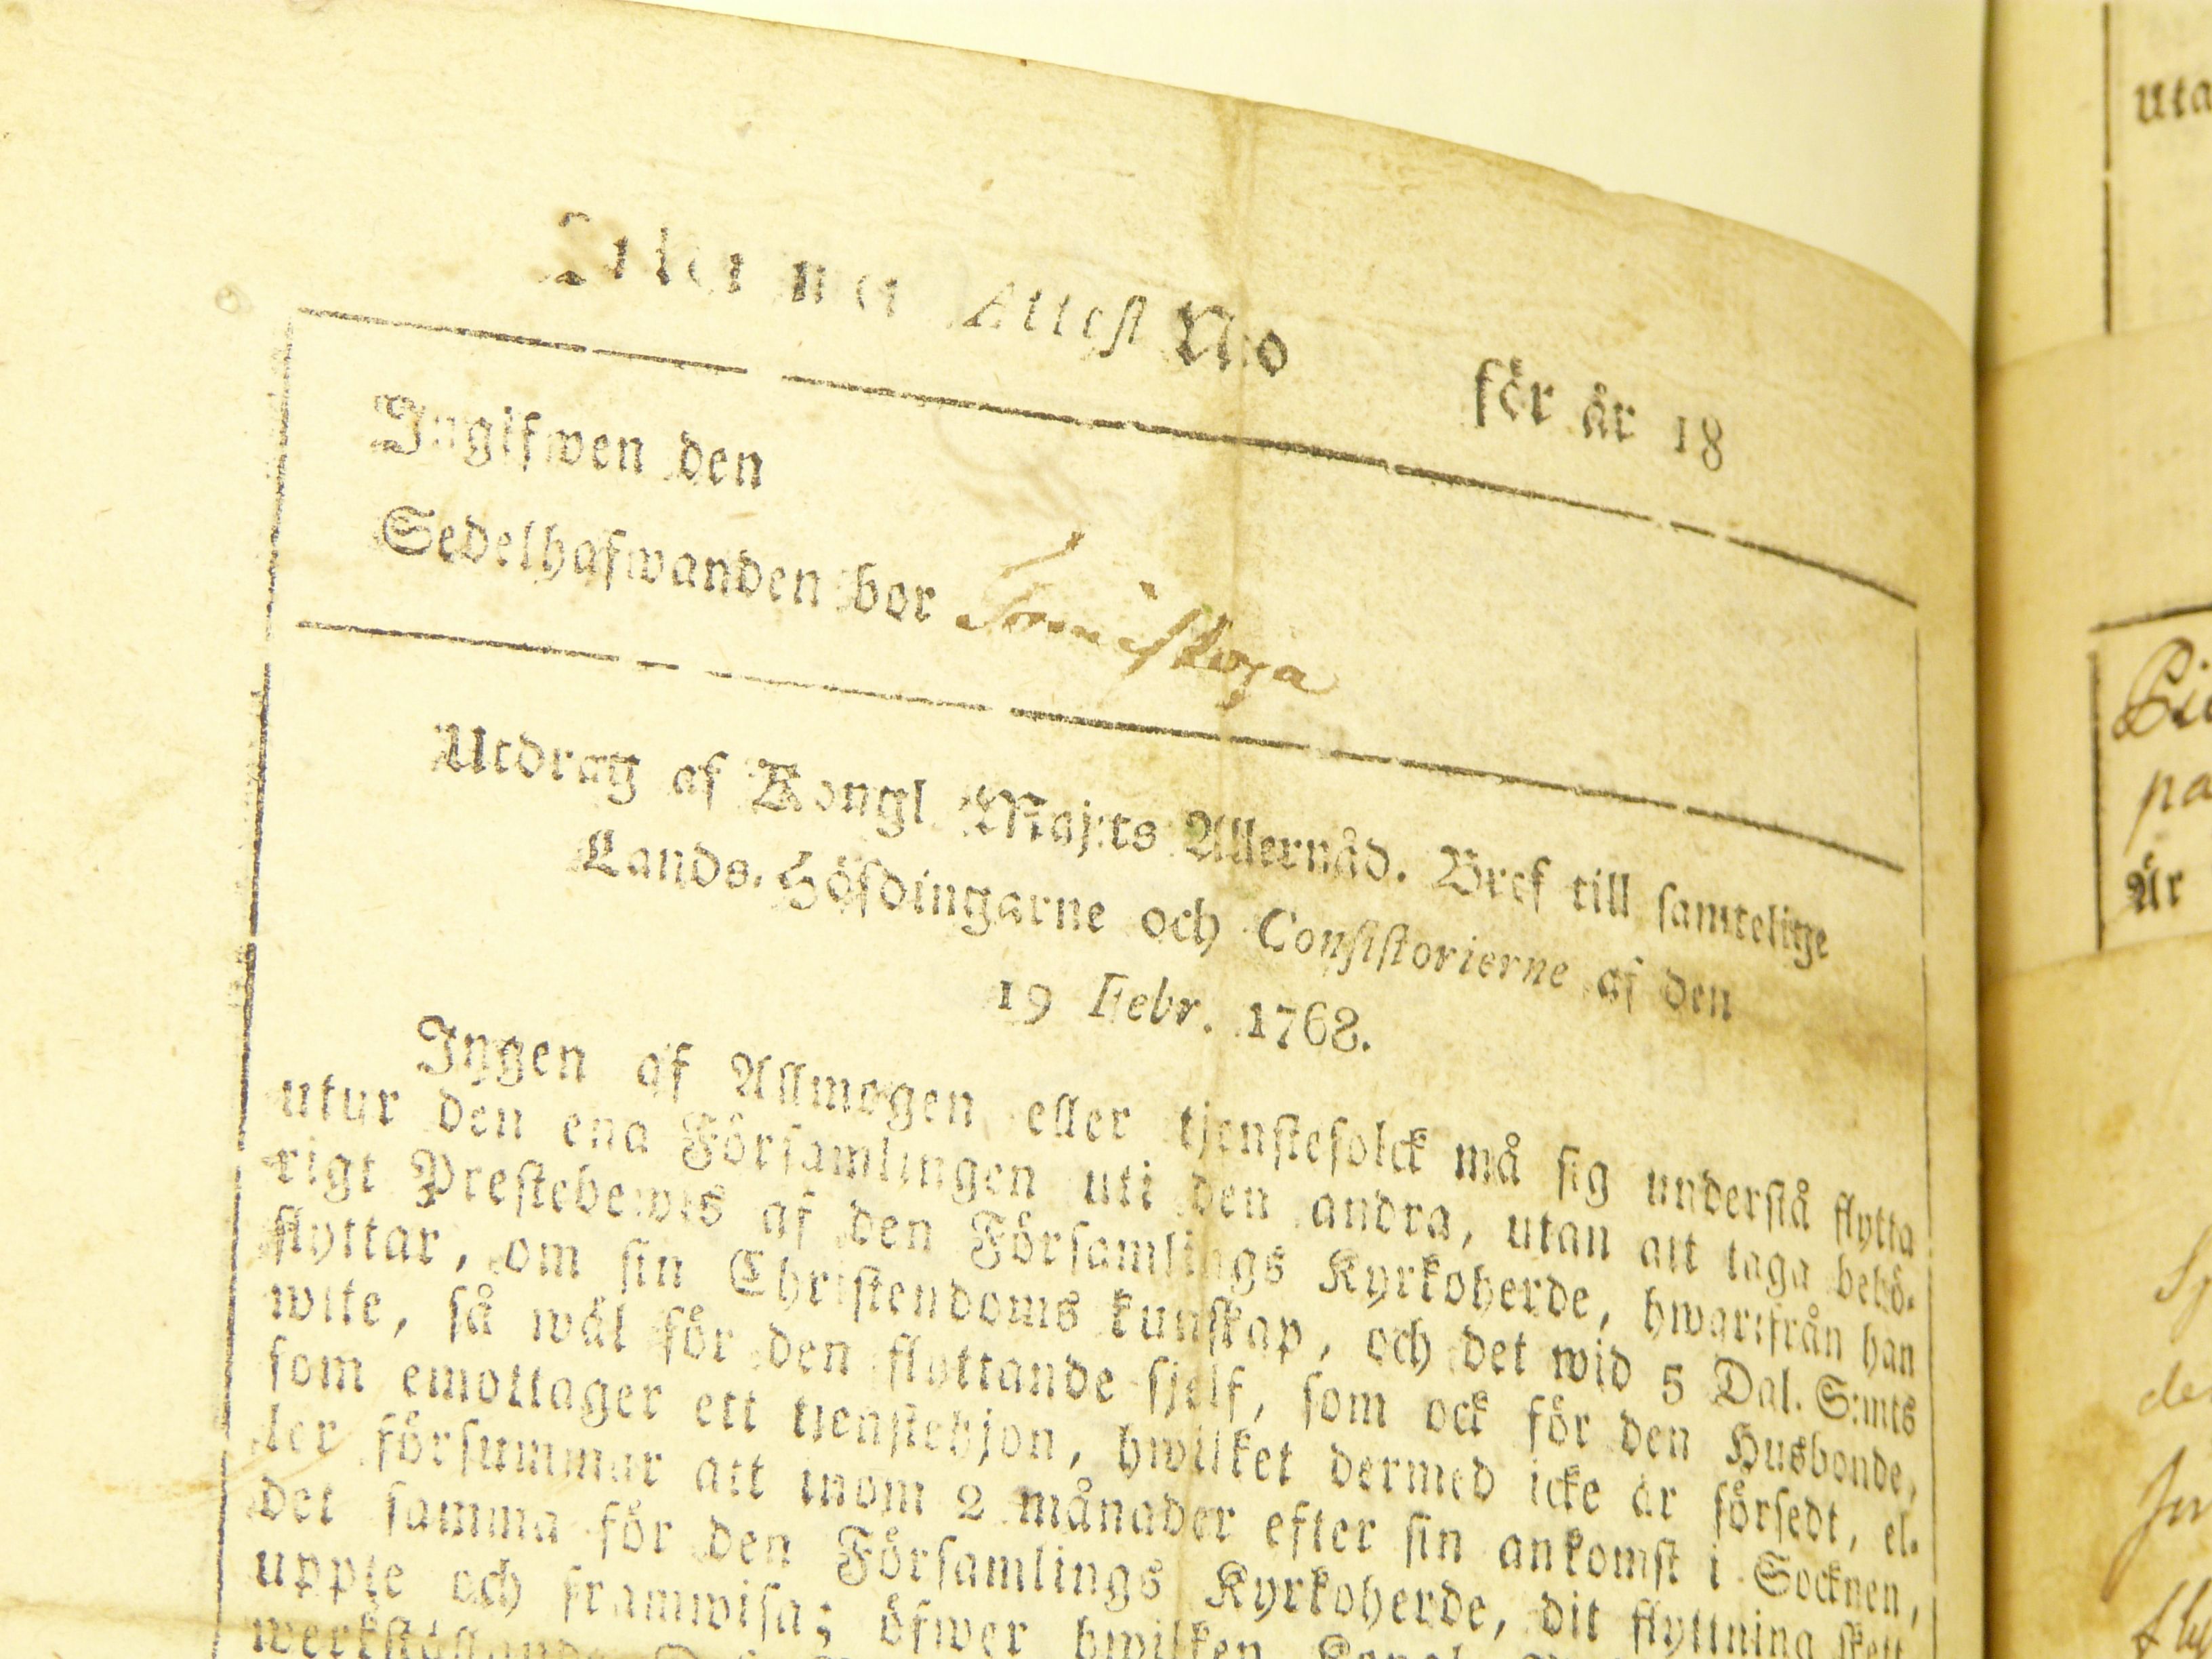 Attest N:o för år 18
Ingifwen den
Sedelhafwanden bor
Utdrag af Kongl. Maj:ts Allernåd. Bref till samtelige
Lands-Höfdingarne och Consistorierne af den
19 Febr. 1768.
Ingen af Allmogen eller tjenstefolck må sig understå flytta
utur den ena Församlingen uti den andra, utan att taga behö-
rigt Prestebewis af den Församlings Kyrkoherde, hwarifrån han
flyttar, om sin Christendoms kunskap, och det wid 5 Dal. S:mts
wite, så wäl för den flyttande sjelf, som ock för den Husbonde,
som emottager ett tjenstehjon, hwilket dermed icke är försedt, el-
ler försummar att inom 2 månader efter sin ankomst i Socknen,
det samma för den Församlings Kyrkoherde, dit flyttning skett
uppte och framwisa; öfwer hwilken
Uta
pa
Är
de